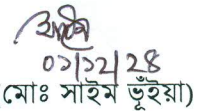 ০১/১২/২৪
(মোঃ সাইম ভূঁইয়া)